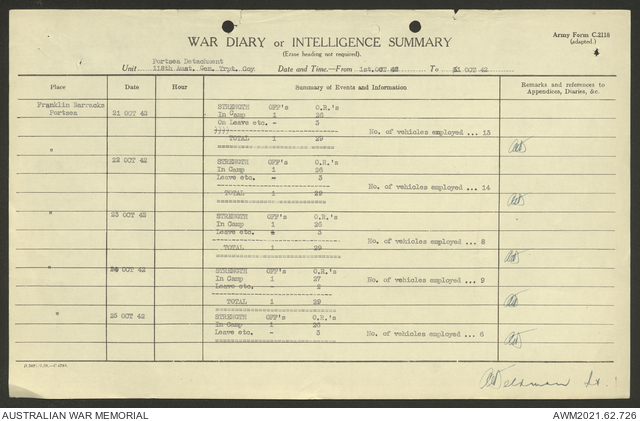 Army Form C.2118
(adapted.)
WAR DIARY or INTELLIGENCE SUMMARY
(Erase heading not required).
Portsea Detachment
Unit 118th Aust. Gen. Trpt. Coy Date and Time.—From 1st. OCT 42 To 31 OCT 42
Place Date Hour Summary of Events and Information Remarks and references to Appendices, Diaries, &c.
Franklin Barracks
Portsea 21 OCT 42
STRENGTH OFF's O.R.'s
In Camp 1 26
On Leave etc. - 3
No. of vehicles employed ... 13
TOTAL 1 29
" 22 OCT 42
STRENGTH OFF's O.R.'s
In Camp 1 26
Leave etc. - 3
No. of vehicles employed ... 14
TOTAL 1 29
" 23 OCT 42
STRENGTH OFF's O.R.'s
In Camp 1 26
Leave etc. 3
No. of vehicles employed ... 8
TOTAL 1 29
" 24 OCT 42
STRENGTH OFF's O.R.'s
In Camp 1 27
Leave etc. - 2
No. of vehicles employed ... 9
TOTAL 1 29
" 25 OCT 42
STRENGTH OFF's O.R.'s
In Camp 1 26
Leave etc. 3
No. of vehicles employed ... 6
Lt.
AUSTRALIAN WAR MEMORIAL
AWM2021.62.726